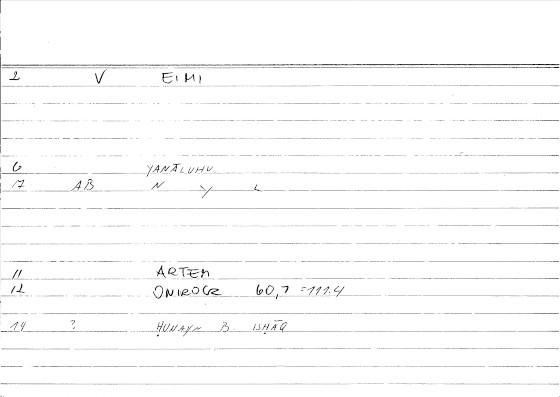 2 V EIMI
6 YANĀLUHU
17 AB N Y L
11 ARTEM
12 ONIROCR 60,7 =111.4
14 ? ḤUNAYN B. ISḤĀQ